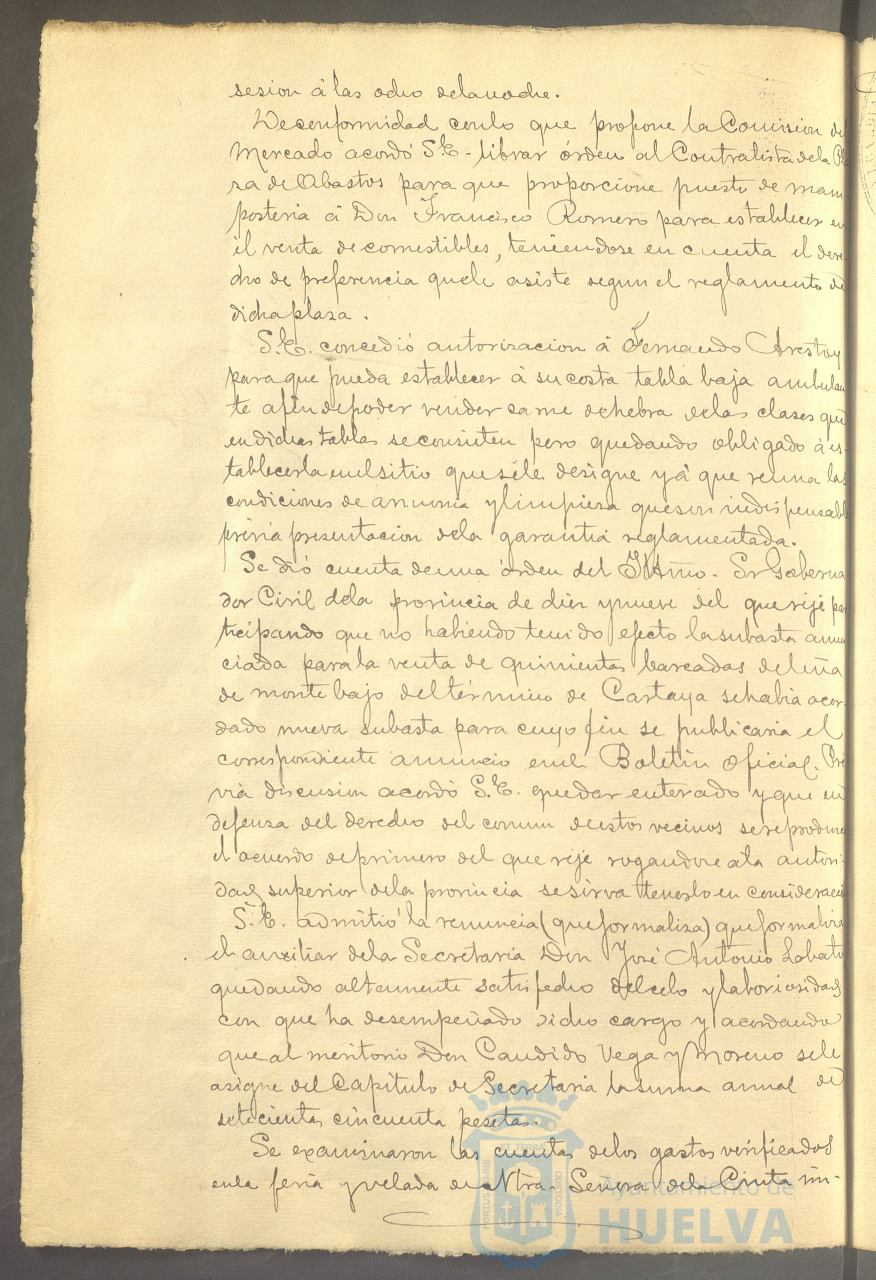 sesion á las ocho delanoche.
Deconformidad conlo que propone la Comision del
Mercado acordó S.E. librar órden al Contratista dela Pla
za de Abastos para que proporcione puesto de mam
posteria á Don Francisco Romero para establecer en
él venta de comestibles, teniendose en cuenta el dere
cho de preferencia quele asiste segun el reglamento de
dicha plaza.
S.E. concedió autorizacion á Fernando Arestoy
para que pueda establecer á su costa tabla baja ambulan
te afin depoder vender carne dehebra delas clases que
endichas tablas se consiten pero quedando obligado á es-
tablecerla enelsitio quesele designe y á que reuna las
condiciones de armonia ylimpieza queson indispensabl
prévia presentacion dela garantia reglamentada.
Se dió cuenta deuna órden del Iltmo. Sr Goberna
dor Civil dela provincia de diez ynueve del querije par
ticipando que no habiendo tenido efecto lasubasta anun
ciada para la venta de quinientas barcadas deleña
de monte bajo del término de Cartaya sehabia acor-
dado nueva subasta para cuyo fin se publicaria el
correspondiente anuncio enel Boletin oficial. Pré
via discusion acordó S.E. quedar enterado y que en
defensa del derecho del comun deestos vecinos sereproduce
el acuerdo deprimero del que rije rogandose ala autori-
dad superior dela provincia sesirva tenerlo en consideracion
S.E. admitió la renuncia (queformaliza) queformaliza
el auxiliar dela Secretaría Don José Antonio Lobato
quedando altamente satisfecho delcelo ylaboriosidad
con que ha desempeñado dicho cargo y acordando
que al meritorio Don Candido Vega y Moreno sele
asigne del Capítulo de Secretaria la suma anual de
setecientas cincuenta pesetas.
Se examinaron las cuentas delos gastos verificados
enla feria yvelada de Ntra. Senora dela Cinta im-
Ayuntamiento de
HUELVA